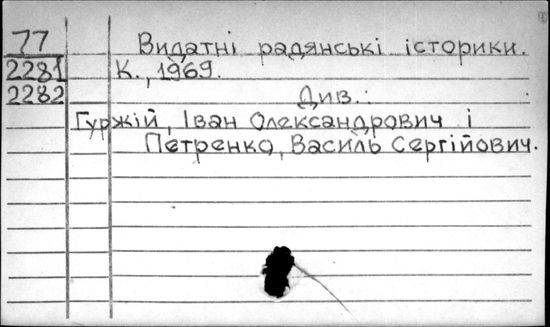 77 Видатні радянські історики.
2281 К., 1969.
2282 Див.:
Гуржій, Іван Олександрович і
Петренко, Василь Сергійович.